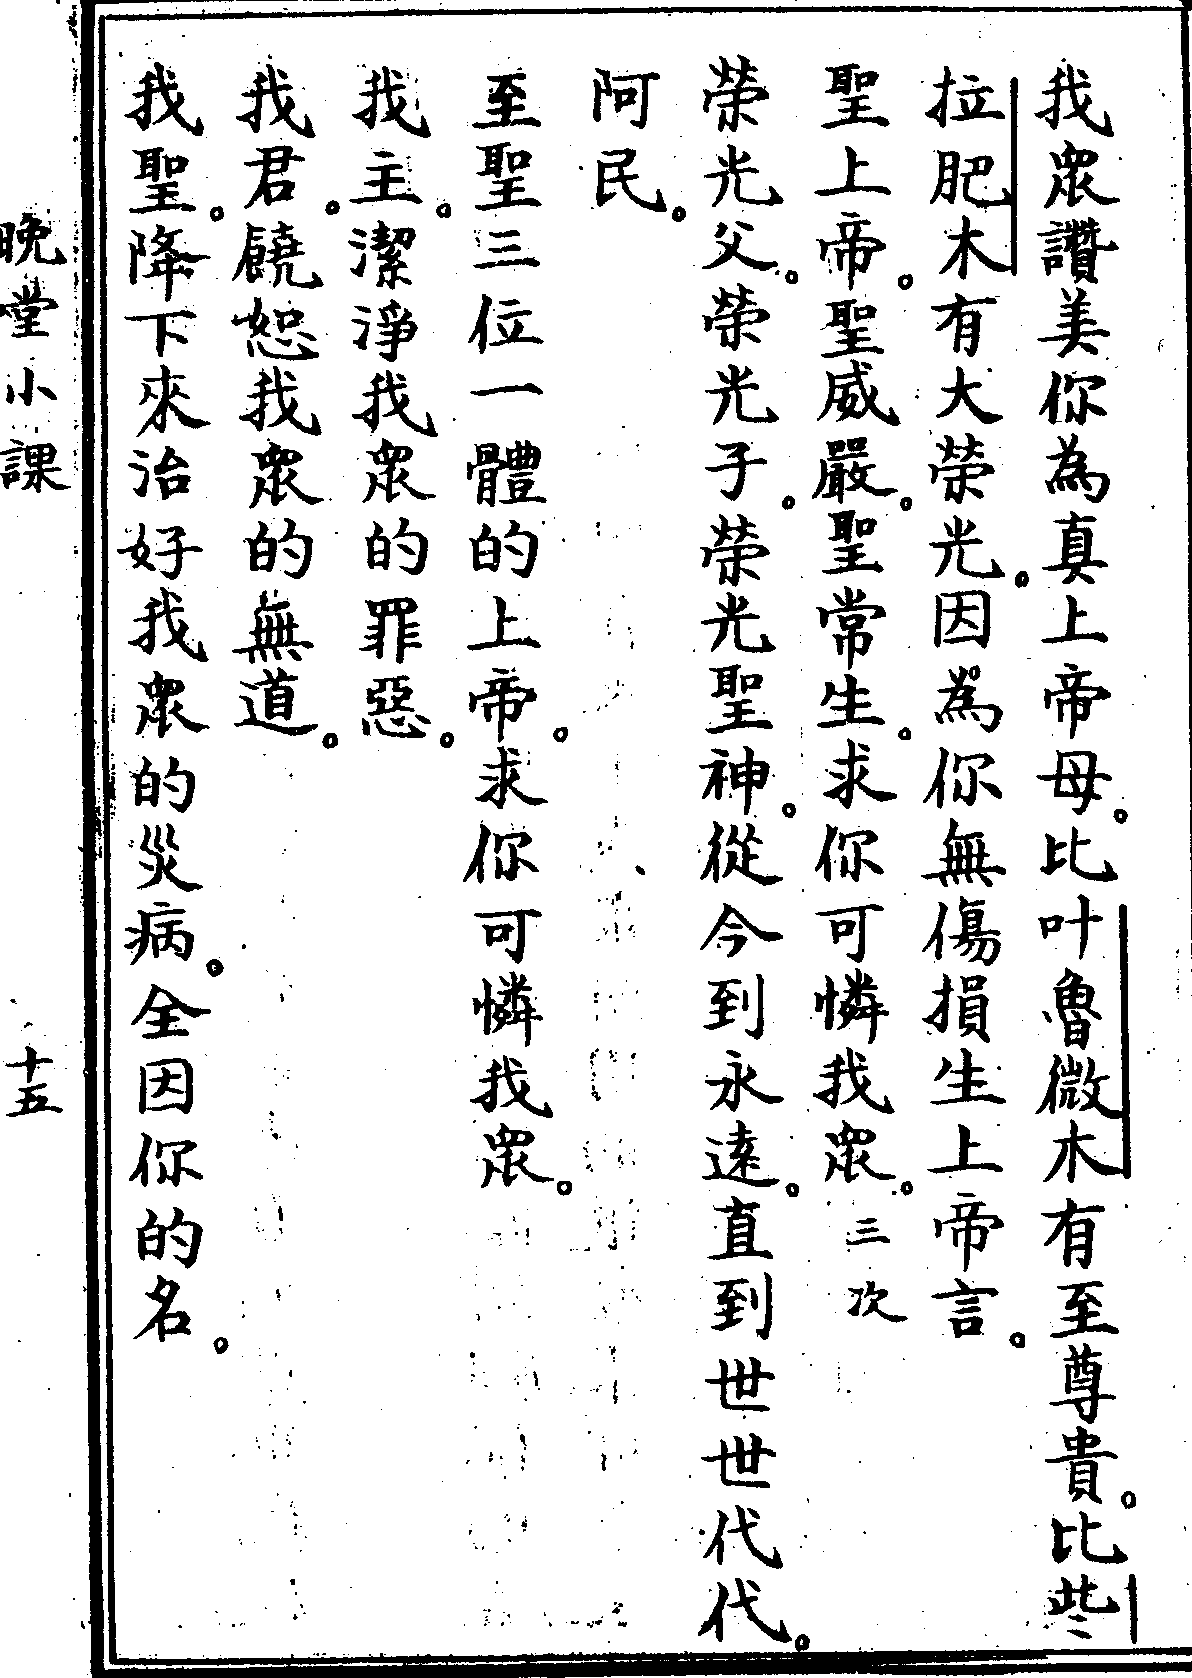 我眾讚美你為真上帝母。比叶魯微木有至尊貴。比些
拉肥木有大榮光。因為你無傷損生上帝言。
聖上帝。聖威嚴。聖常生。求你可憐我眾。三次
榮光父。榮光子。榮光聖神。從今到永遠。直到世世代代。
阿民。
至聖三位一體的上帝。求你可憐我眾。
我主。潔淨我眾的罪惡。
我君。饒恕我眾的無道。
我聖。降下來治好我眾的災病。全因你的名。
晚堂小課
十五